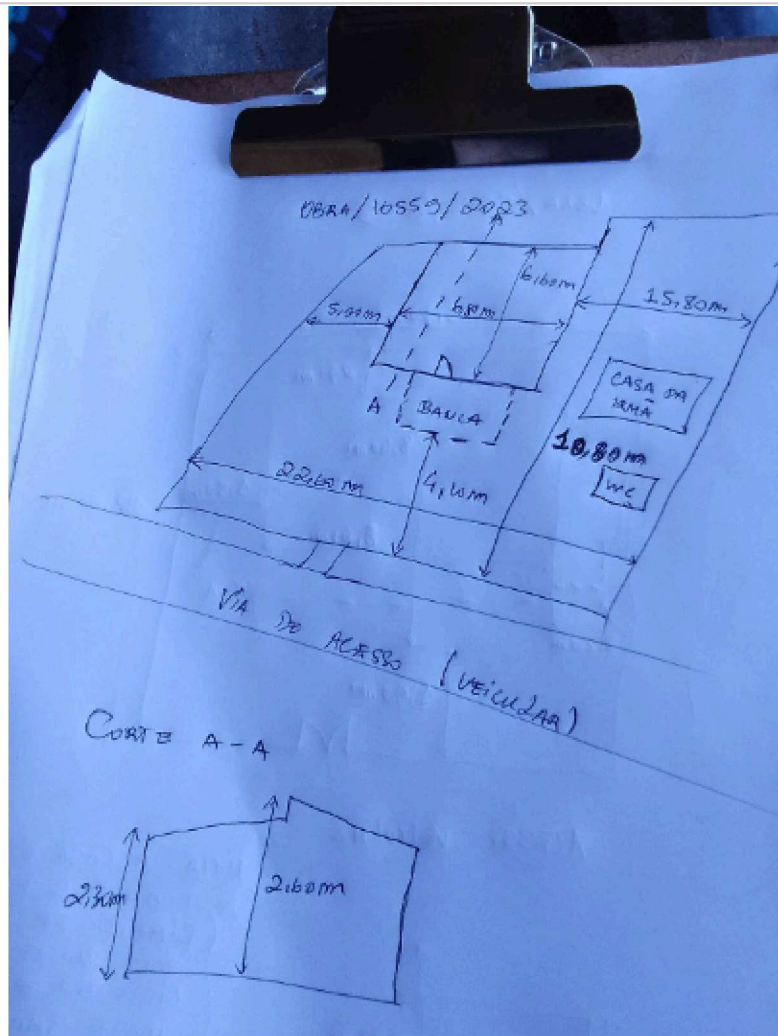 OBRA/10559/2023
6,60m
5,00m
6,80m
15,80m
A
BANCA
CASA DA
IRMÃ
10,80m
WC
22,60m
4,10m
VIA DE ACESSO (VEICULAR)
CORTE A-A
2,30m
2,60m